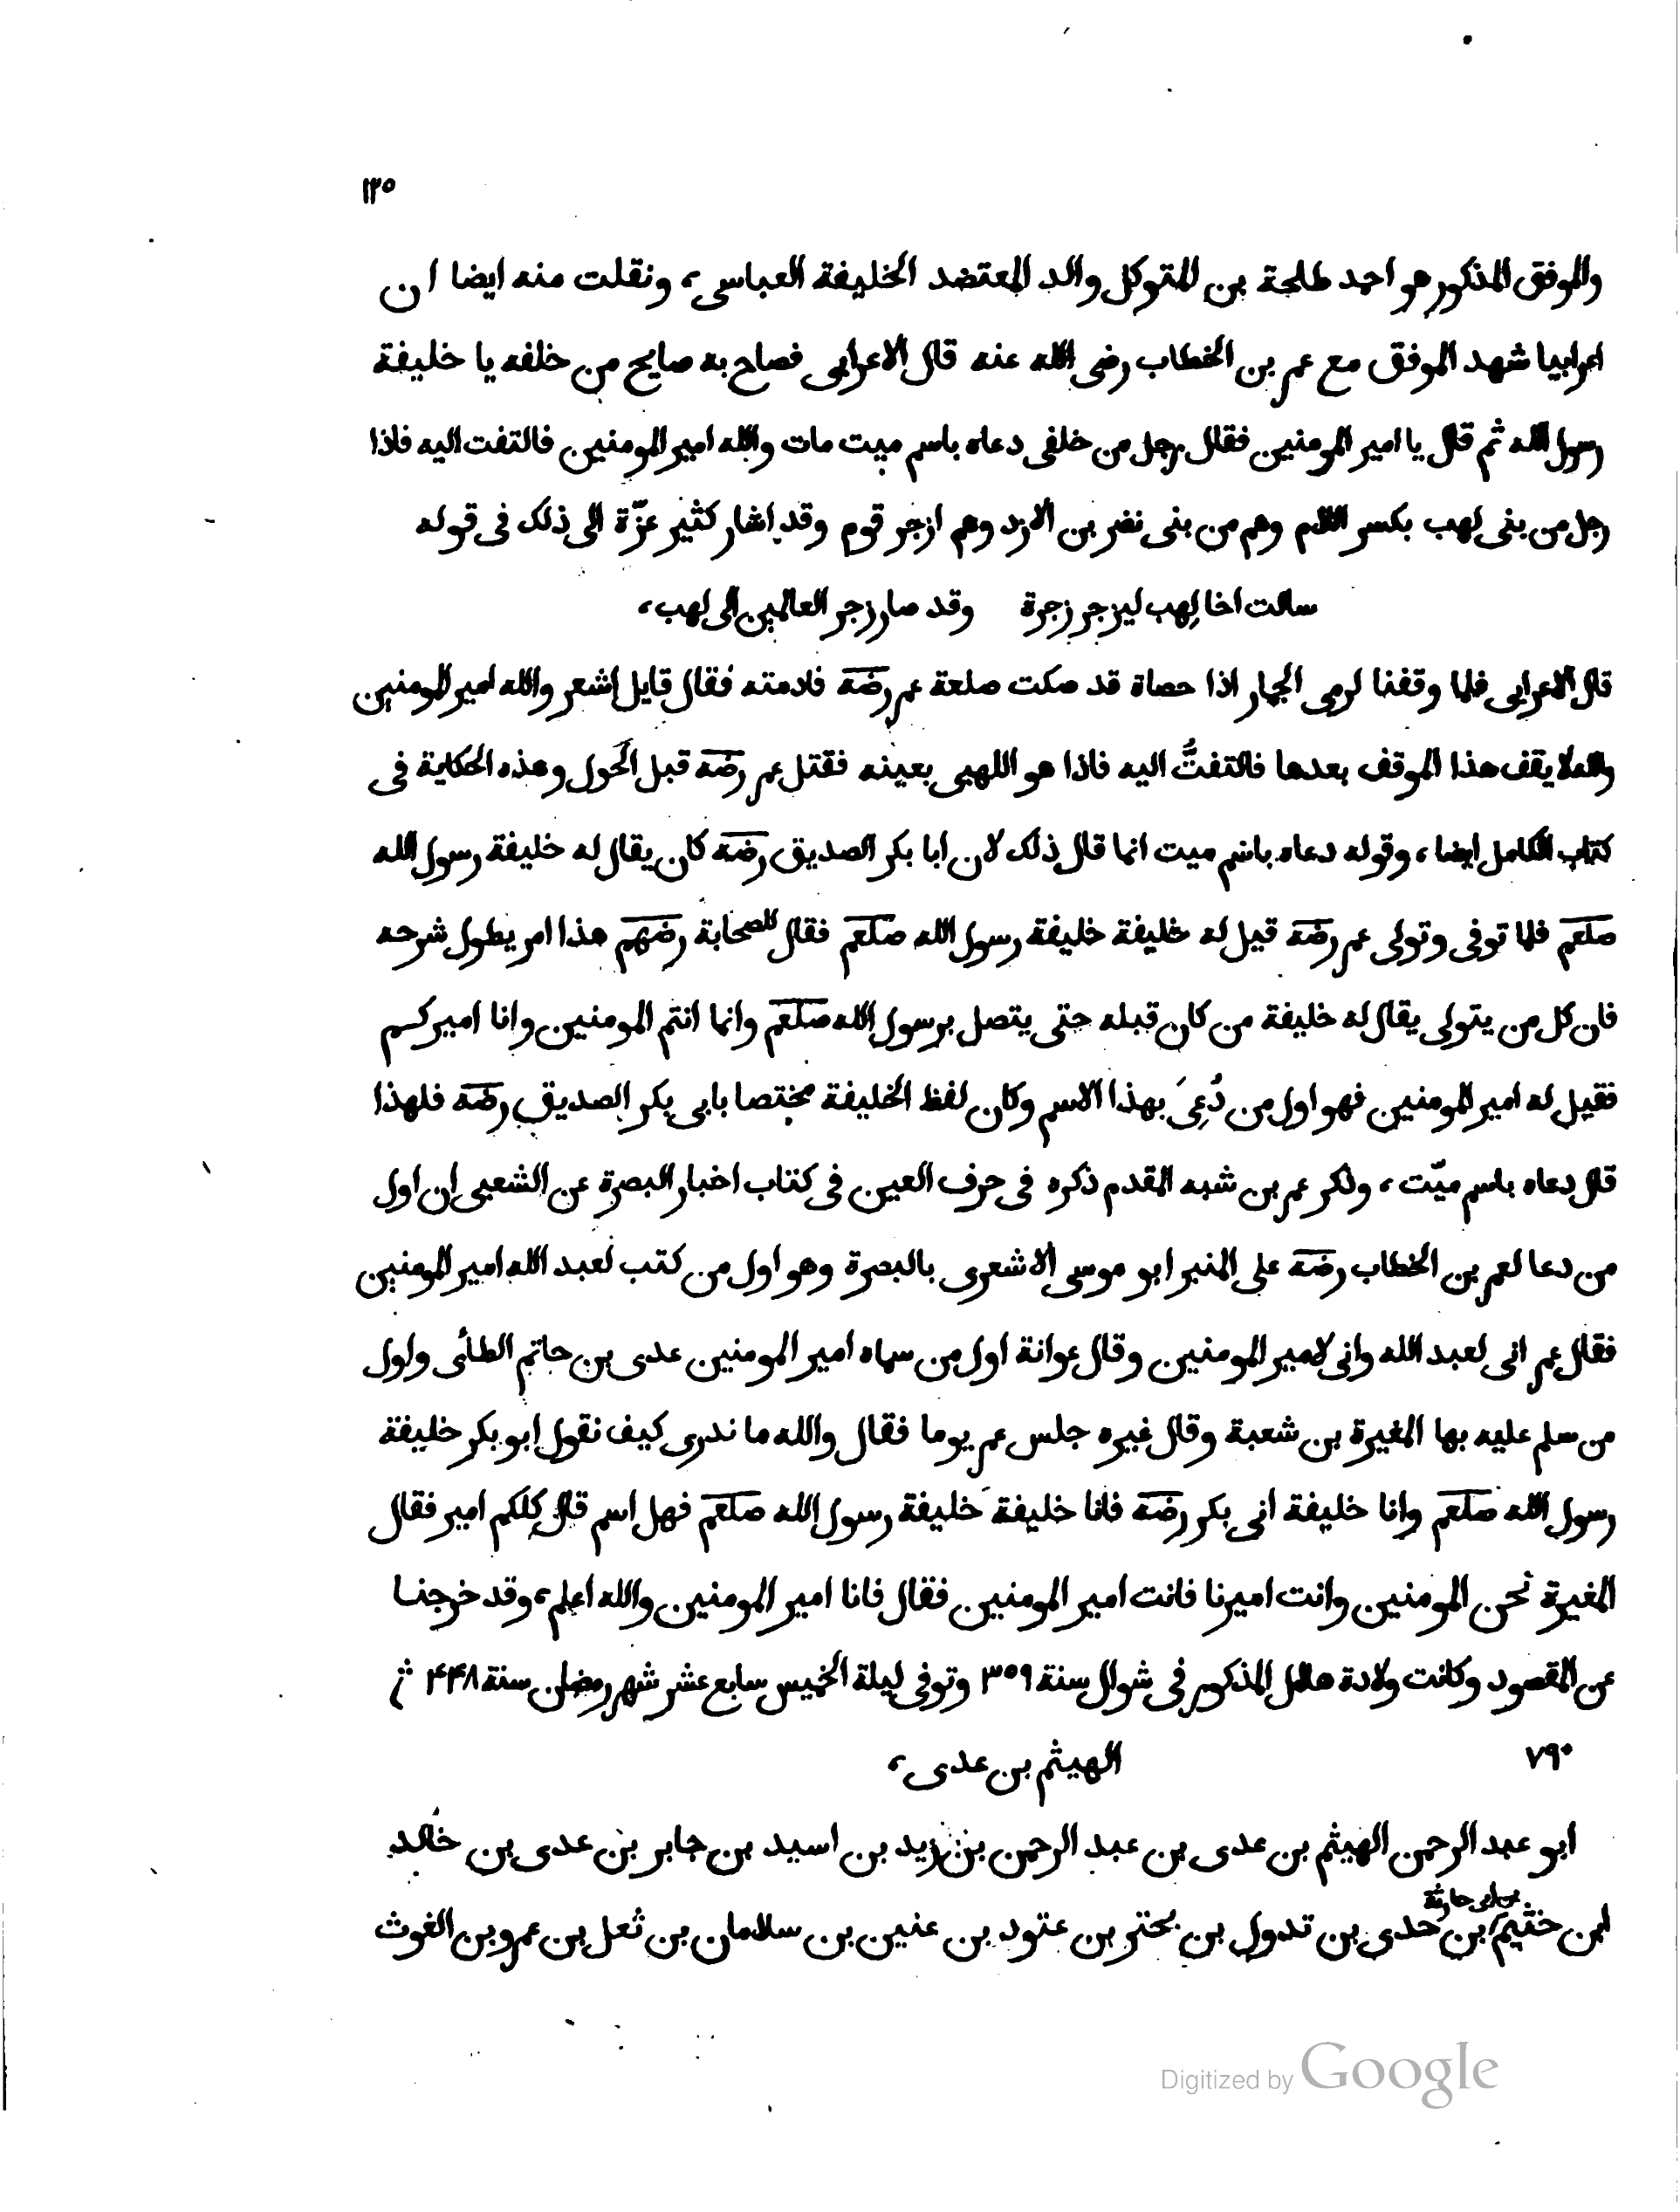 ١٢٥
والموفق المذكور هو احمد طلحة بن المتوكل والد المعتضد الخليفة العباسى، ونقلت منه ايضا ان
اعرابيا شهد الموقف مع عمر بن الخطاب رضى الله عنه قال الاعرابى فصاح به صايح من خلفه يا خليفة
رسول الله ثم قال يا امير المومنين فقال رجل من خلفى دعاه باسم ميت مات والله امير المومنين فالتفت اليه فاذا
رجل من بنى لهب بكسر اللام وهم من بنى نضر بن الازد وهم ازجر قوم وقد اشار كثير عزّة الى ذلك فى قوله
سالت اخا لِهب ليزجر زجرة وقد صار زجر العالمين الى لهب،
قال الاعرابى فلما وقفنا لرمى الجمار اذا حصاة قد صكت صلعة عمر رضه فادمته فقال قايل اشعر والله امير المومنين
والله لا يقف هذا الموقف بعدها فالتفتُّ اليه فاذا هو اللهبى بعينه فقتل عمر رضه قبل الحَول وهذه الحكاية فى
كتاب الكامل ايضا، وقوله دعاه باسم ميت انما قال ذلك لان ابا بكر الصديق رضه كان يقال له خليفة رسول الله
صلعم فلما توفى وتولى عمر رضه قيل له خليفة خليفة رسول الله صلعم فقال للصحابة رضهم هذا امر يطول شرحه
فان كل من يتولى يقال له خليفة من كان قبله حتى يتصل برسول الله صلعم وانما انتم المومنين وانا اميركم
فقيل له امير المومنين فهو اول من دُعِىَ بهذا الاسم وكان لفظ الخليفة مختصا بابى بكر الصديق رضه فلهذا
قال دعاه باسم ميّت، وذكر عمر بن شبه المقدم ذكره فى حرف العين فى كتاب اخبار البصرة عن الشعبى ان اول
من دعا لعمر بن الخطاب رضه على المنبر ابو موسى الاشعرى بالبصرة وهو اول من كتب لعبد الله امير المومنين
فقال عمر انى لعبد الله وانى لامير المومنين وقال عوانة اول من سماه امير المومنين عدى بن حاتم الطائى واول
من سلم عليه بها المغيرة بن شعبة وقال غيره جلس عمر يوما فقال والله ما ندرى كيف نقول ابو بكر خليفة
رسول الله صلعم وانا خليفة ابى بكر رضه فانا خليفة خليفة رسول الله صلعم فهل اسم قال كلكم امير فقال
المغيرة نحن المومنين وانت اميرنا فانت امير المومنين فقال فانا امير المومنين والله اعلم، وقد خرجنا
عن المقصود وكانت ولادة هلال المذكور فى شوال سنة ٣٥٩ وتوفى ليلة الخميس سابع عشر شهر رمضان سنة ٤٤٨
٧٩٠ الهيثم بن عدى،
ابو عبد الرحمن الهيثم بن عدى بن عبد الرحمن بن زيد بن اسيد بن جابر بن عدى بن خالد
بن ابى حارثة
ابن خثيم بن حدى بن تدول بن بحتر بن عتود بن عنين بن سلامان بن ثعل بن عمرو بن الغوث
Digitized by Google